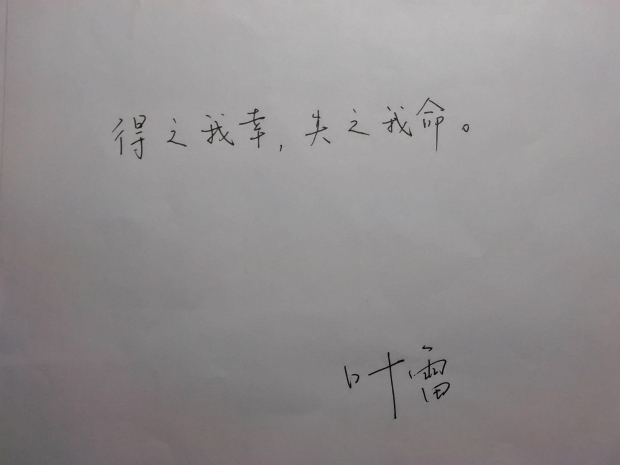 得之我幸,失之我命。
叶雷